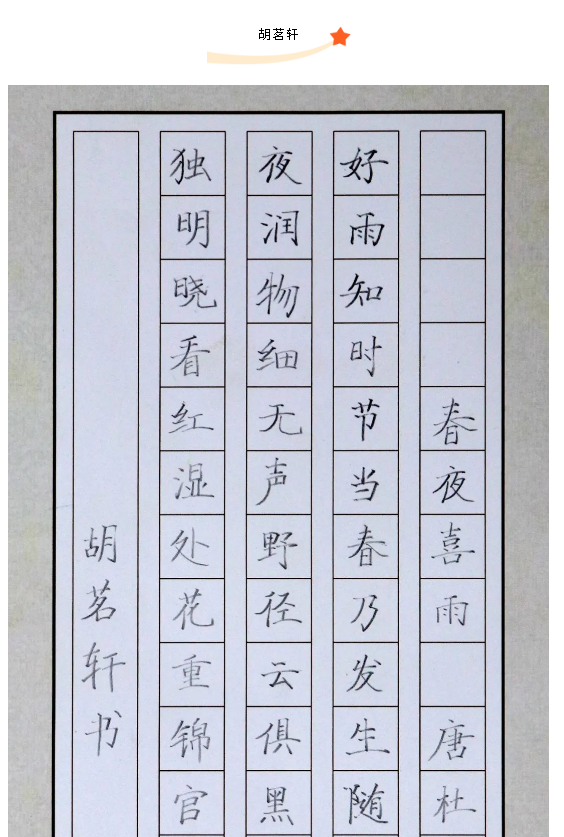 胡茗轩
春夜喜雨 唐杜
好雨知时节当春乃发生随
夜润物细无声野径云俱黑
独明晓看红湿处花重锦官
胡茗轩书